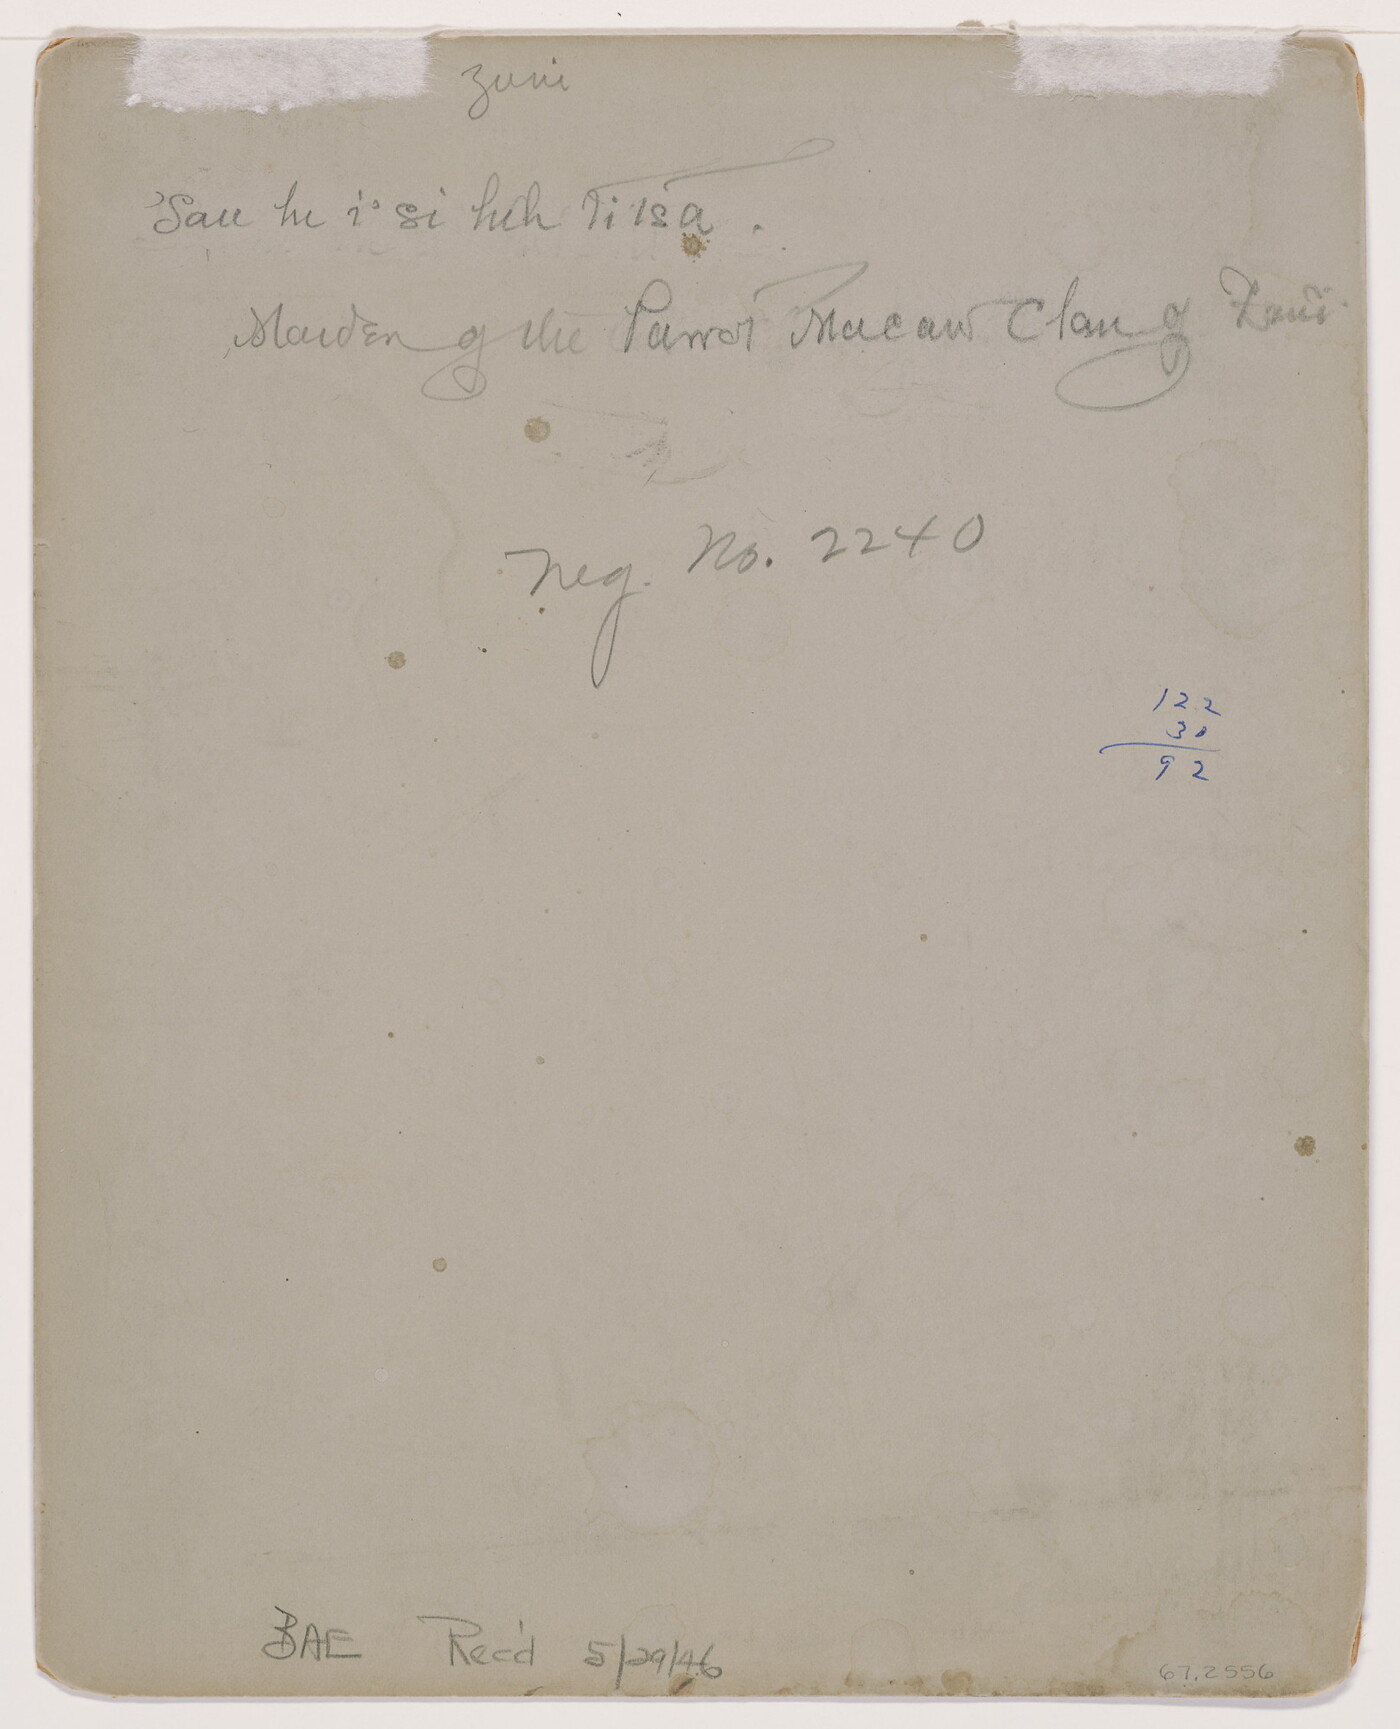 Zuni
Maiden of the Parrot Macaw Clan of Zuñi.
Neg. No. 2240
122
30
92
BAE Rec'd 5/29/46
67.2556